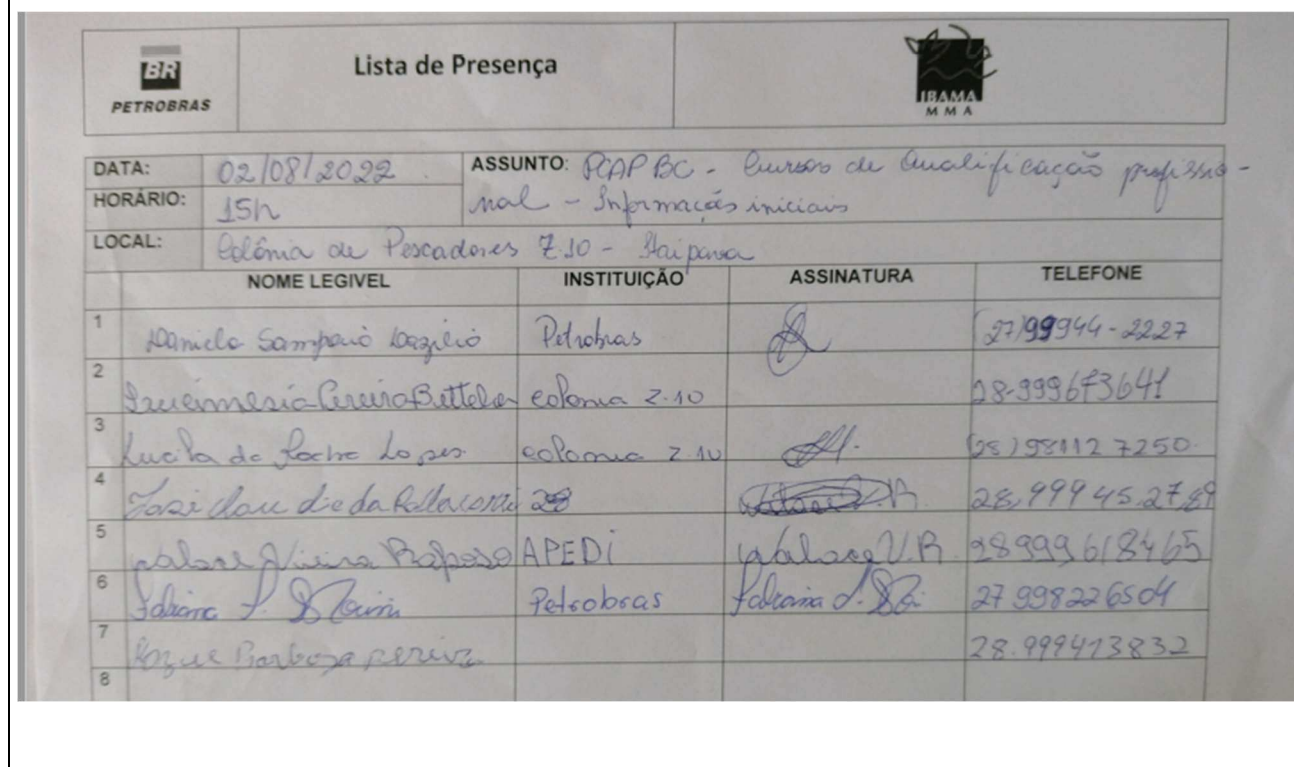 BR
PETROBRAS
Lista de Presença
IBAMA
M M A
DATA: 02/08/2022
ASSUNTO: PCAP BC - Cursos de Qualificação profissio-
HORÁRIO: 15h
nal - Informações iniciais
LOCAL: Colônia de Pescadores Z.10 - Itaipava
NOME LEGIVEL INSTITUIÇÃO ASSINATURA TELEFONE
1 Daniela Sampaio Petrobras (27)99944-2227
2 Pereira colonia Z.10 28-999673641
3 Lucila da Rocha Lopes colonia Z.10 (28) 98112 7250
4 28,99945.2789
5 Walace Vieira Raposo APEDI Walace V.R. 28999618465
6 Fabiana Petrobras Fabiana 27 998226504
7 Barbosa pereira 28.999413832
8